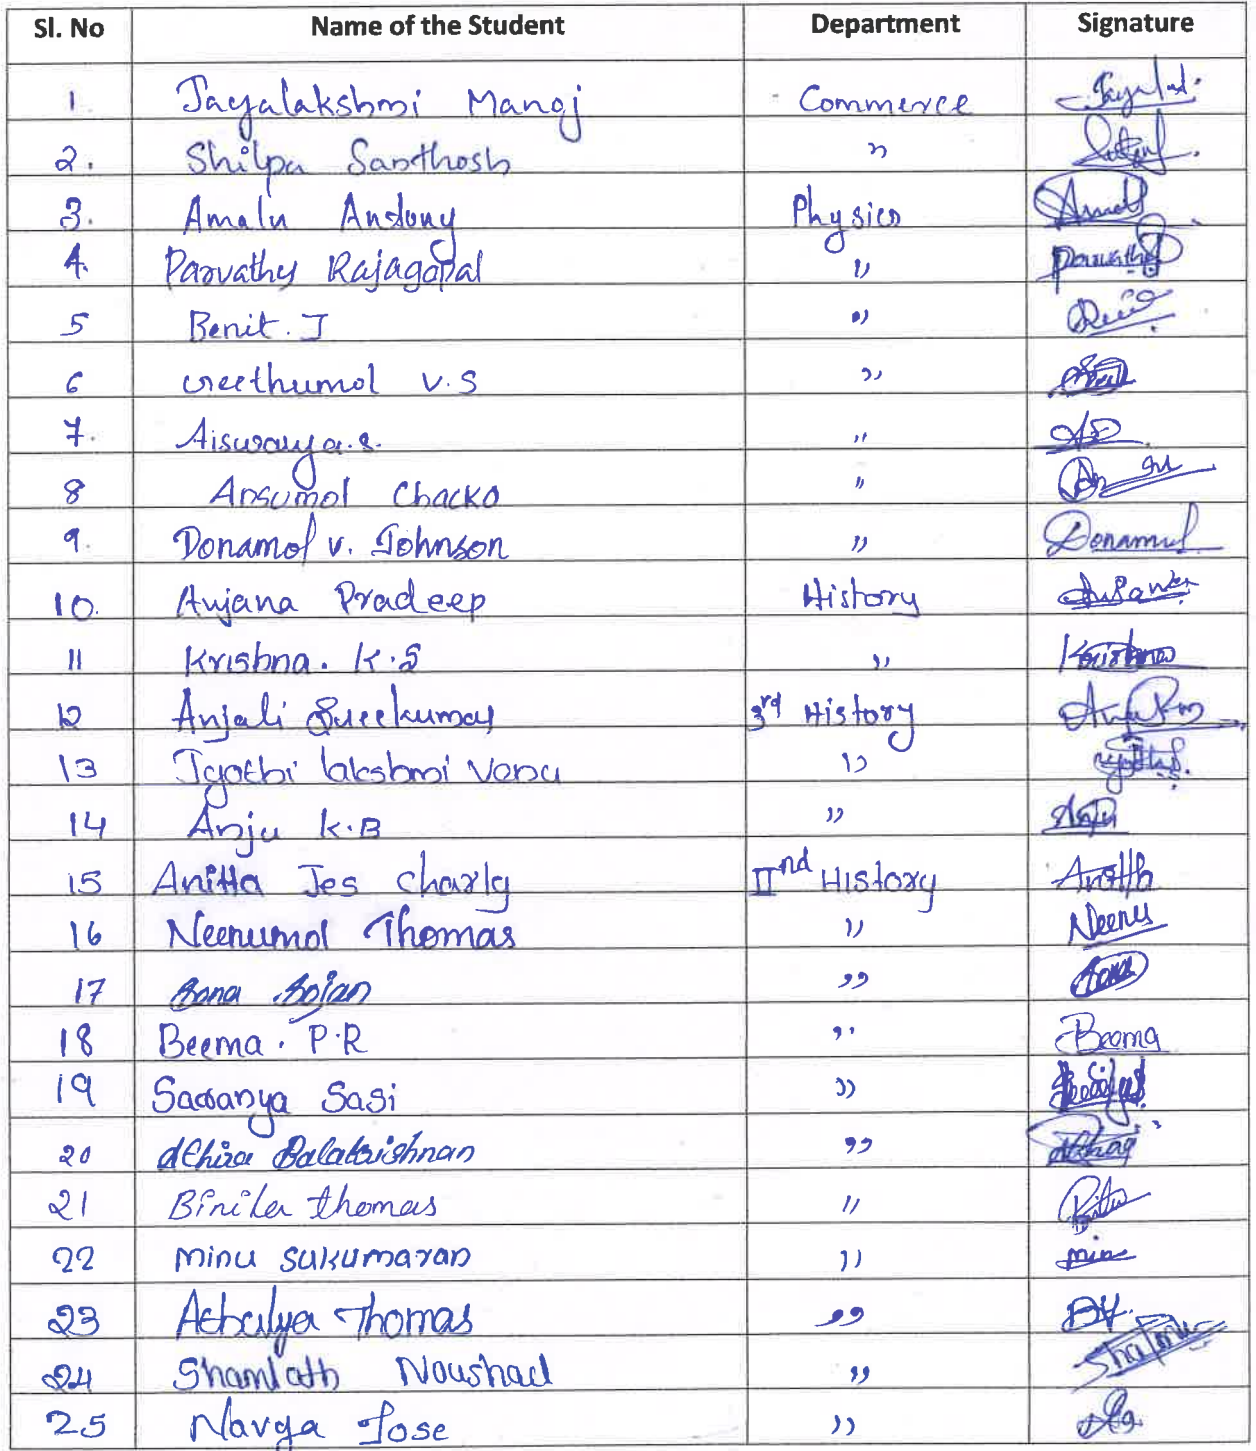 Sl. No Name of the Student Department Signature
1 Jayalakshmi Manoj Commerce
2. Shilpa Santhosh "
3. Amalu Antony Physics
4. Parvathy Rajagopal " Parvathy
5 Benit. J "
6 Greethumol V.S "
7. Aiswarya.S. "
8 Ansumol Chacko "
9. Donamol V. Johnson " Donamol
10. Anjana Pradeep History
11 Krishna. K.S " Krishna
12 Anjali Sreekumar 3rd History
13 Jyothi lakshmi Venu "
14 Anju K.B " Anju
15 Anitta Jes Charly IInd History Anitta
16 Neenumol Thomas " Neenu
17 Sona Sojan " Sona
18 Beema. P.R " Beema
19 Saranya Sasi "
20 Athira Balakrishnan "
21 Binila thomas "
22 minu sukumaran " minu
23 Thomas "
24 Shamlath Noushad "
25 Navya Jose "